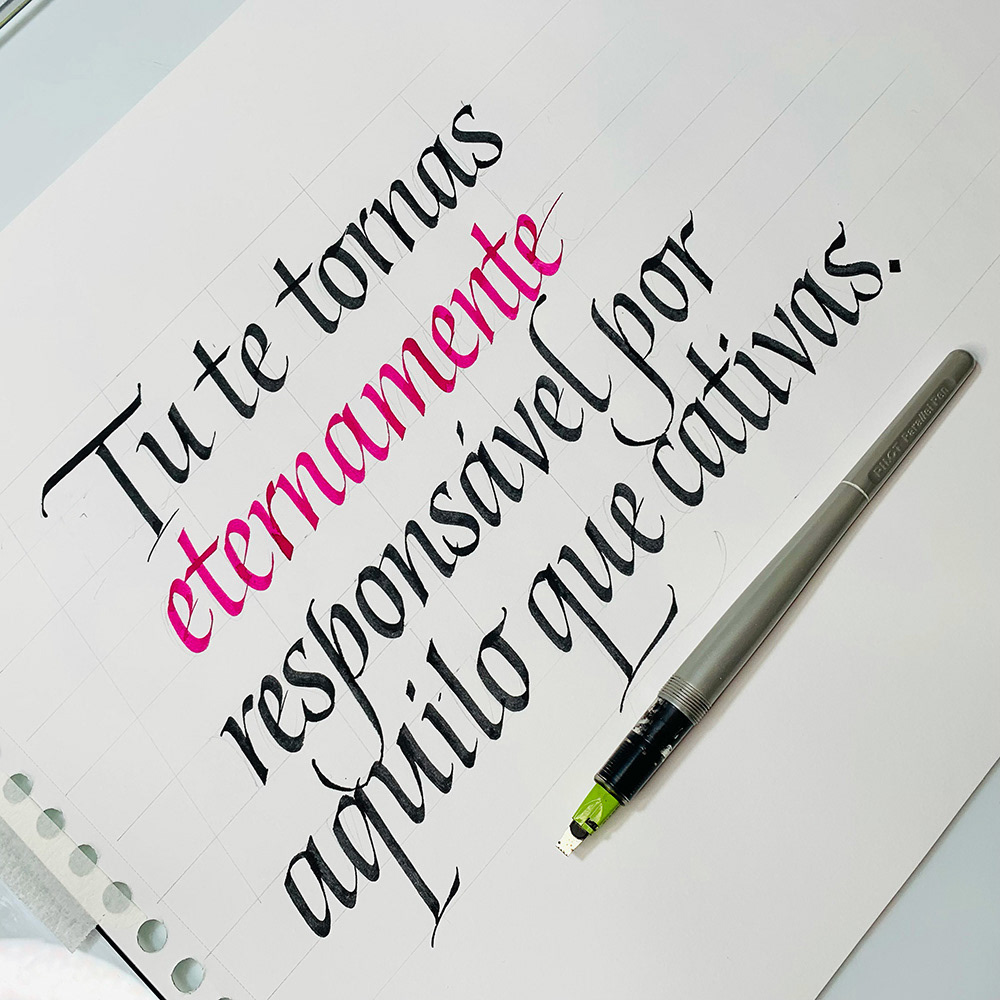 Tu te tornas
eternamente
responsável por
aquilo que cativas.
PILOT Parallel Pen